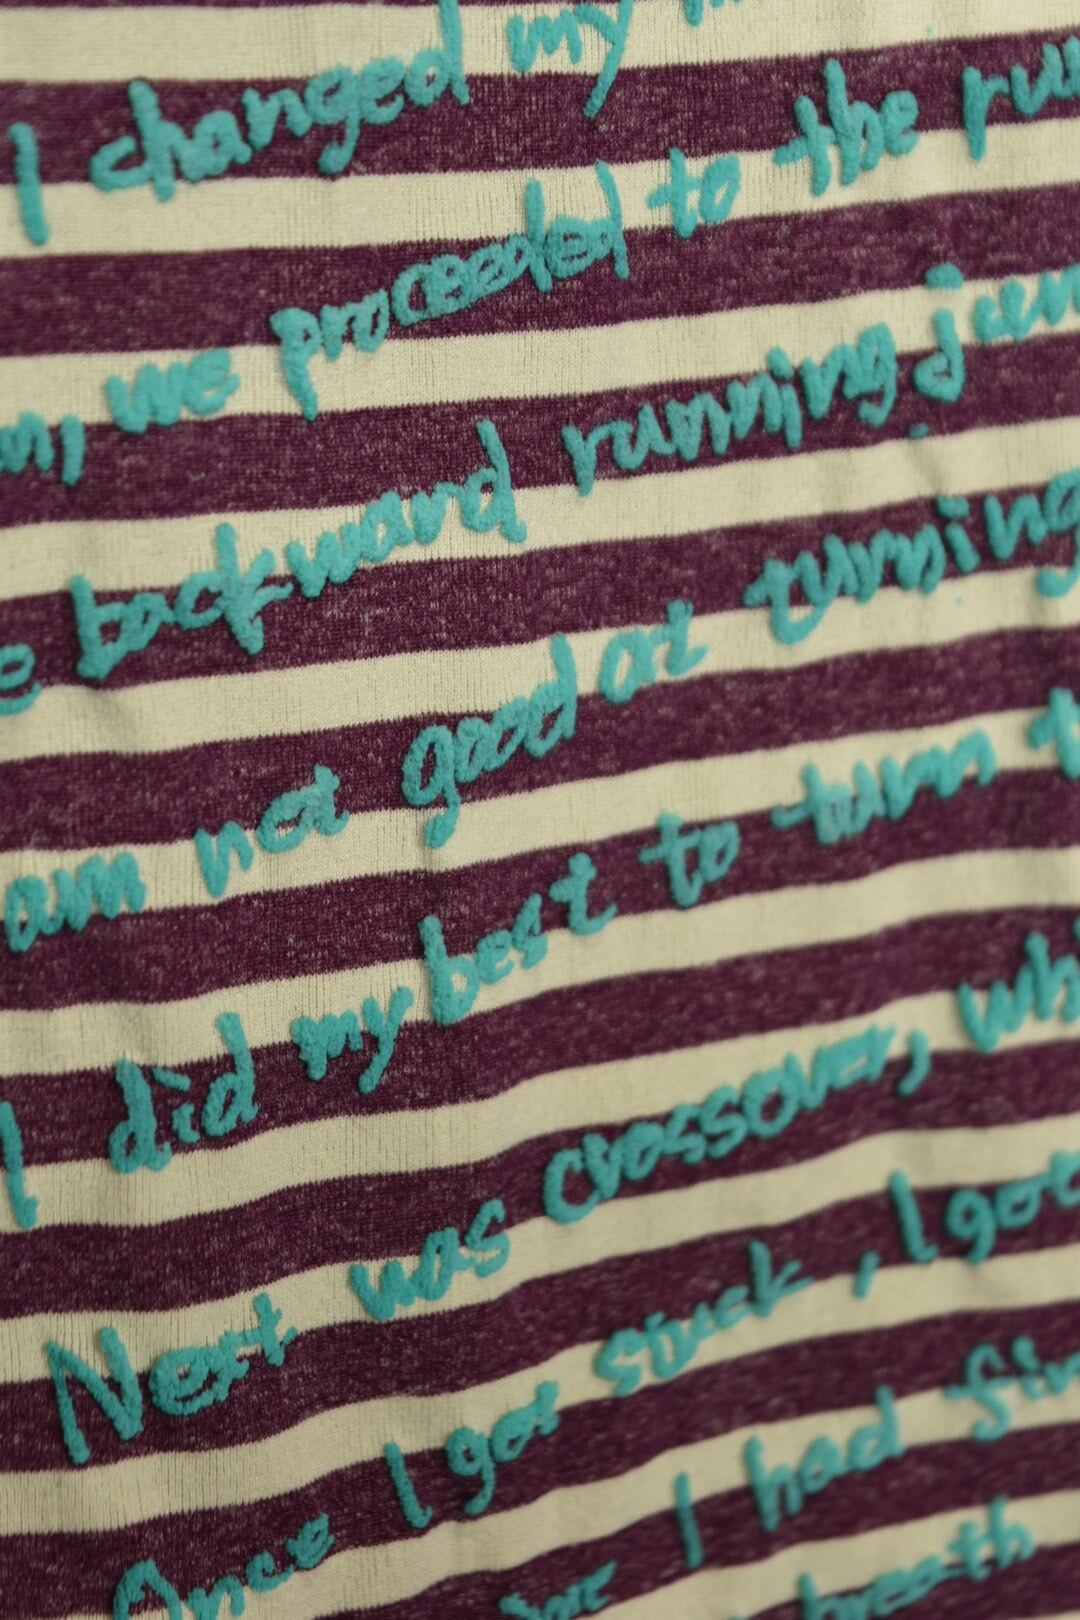 I changed my
we proceeded to the
backward running
am not good at turning
I did my best to turn
Next was crossover,
Once I got stuck, I got
I had
breath